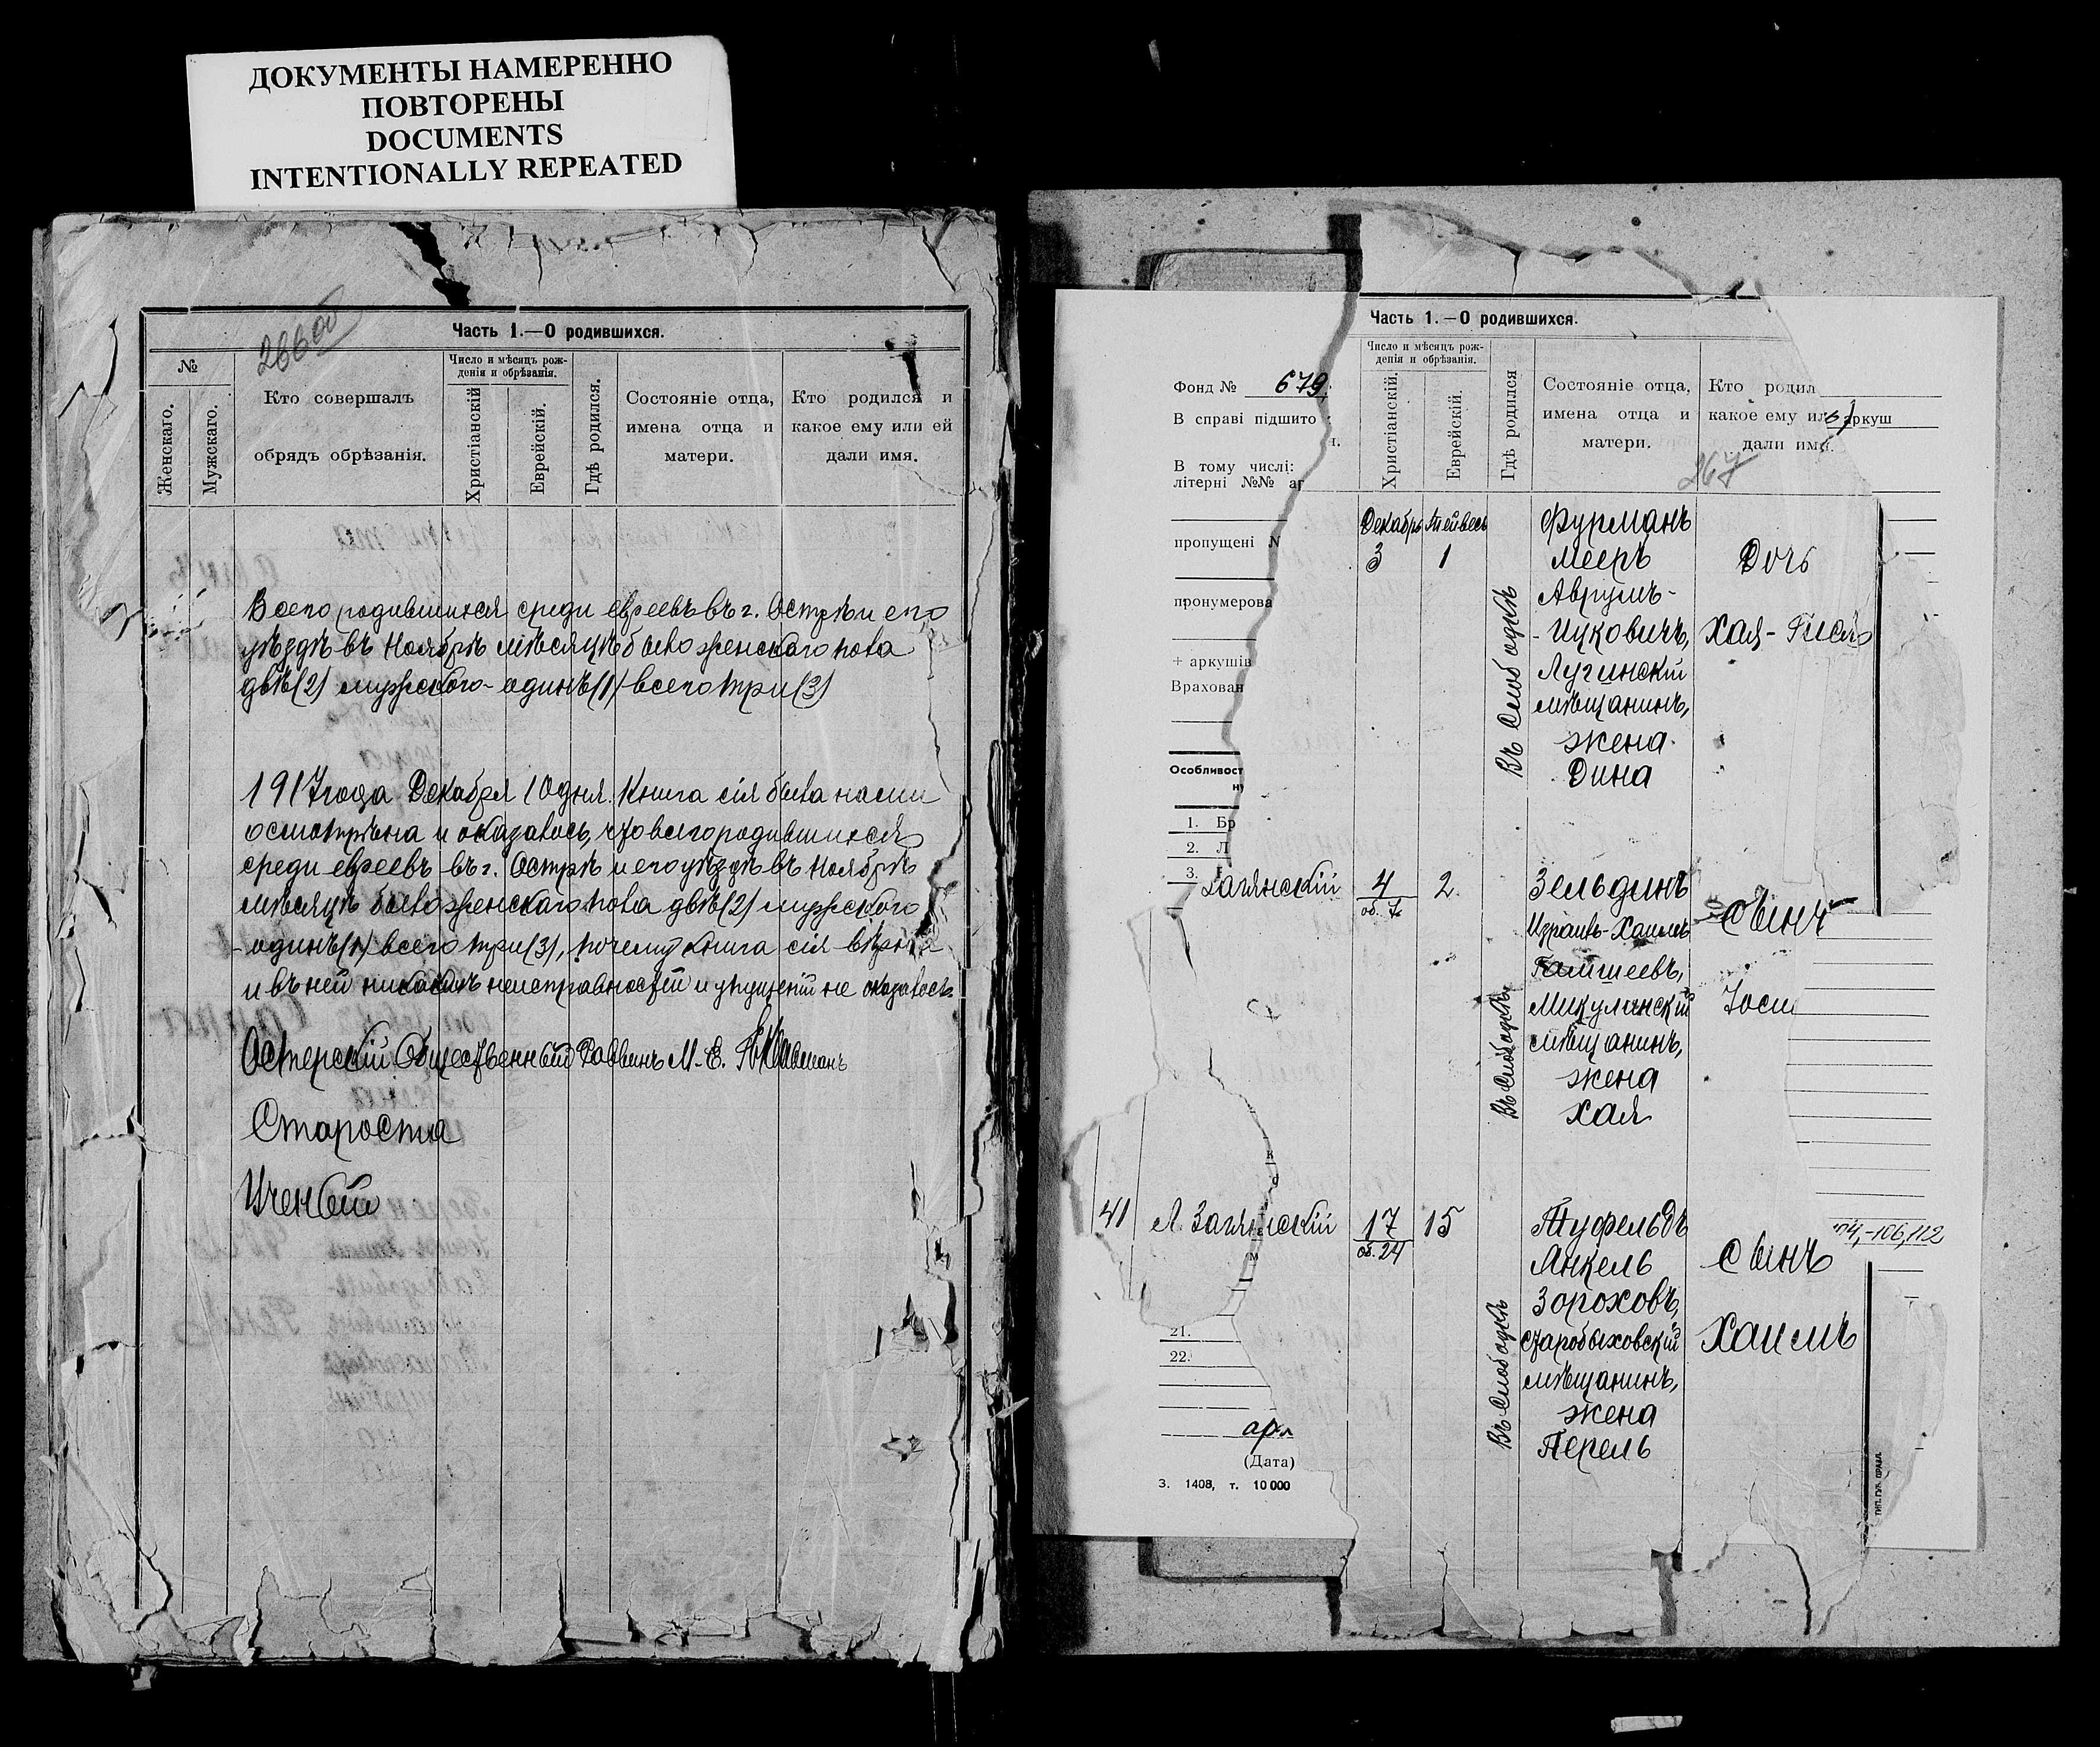 ДОКУМЕНТЫ НАМЕРЕННО
ПОВТОРЕНЫ
DOCUMENTS
INTENTIONALLY REPEATED
266 об
Часть 1.—О родившихся.
№
Женскаго.
Мужскаго.
Кто совершалъ
обрядъ обрѣзанія.
Число и мѣсяцъ рож-
денія и обрѣзанія.
Христіанскій
Еврейскій.
Гдѣ родился.
Состояніе отца,
имена отца и
матери.
Кто родился и
какое ему или ей
дали имя.
Всего родившихся среди евреевъ въ г. Острѣ и его
уѣздѣ въ Ноябрѣ мѣсяцѣ было женскаго пола
двѣ (2) мужского - одинъ (1) всего три (3)
1917 года Декабря 10 дня. Книга сія была нами
осмотрѣна и оказалось, что всего родившихся
среди евреевъ въ г. Острѣ и его уѣздѣ въ Ноябрѣ
мѣсяцѣ было женскаго пола двѣ (2) мужского
- одинъ (1) всего три (3), почему книга сія вѣрна
и въ ней никакихъ неисправностей и упущеній не оказалось.
Остерскій Общественный Раввинъ М. Е.
Староста
Ученый
Часть 1.—О родившихся.
Число и мѣсяцъ рож-
денія и обрѣзанія.
Христіанскій.
Еврейскій.
Гдѣ родился
Состояніе отца,
имена отца и
матери.
Кто родил
какое ему ил
дали имя.
267
Фонд № 679
В справі підшито
аркуш
В тому числі:
літерні №№ аг
пропущені N
пронумерова
+ аркушів
Врахован
Особливост
1. Бр
2. Л
3.
Декабрь Тейвесъ
3 1
Въ Слободкѣ
Фурманъ
Мееръ
Аврумъ-
- Ицковичъ,
Лугинскій
мѣщанинъ,
жена
Дина
Дочь
Хая-Гися
Загянскій
4
об. 7
2.
Въ Слободкѣ
Зельдинъ
Израиль-Хаимъ
мѣщанинъ,
жена
Хая
сынъ
Иоси
41
Л. Загянскій
17
об. 24
15
Въ Слободкѣ
Туфельдъ
Янкель
Зороховъ,
Старобыховскій
мѣщанинъ,
жена
Перель
сынъ
Хаимъ
104,-106,112
21.
22.
арх
(Дата)
З. 1408, т. 10 000
ТИП. ГУБ. ПРАВЛ.